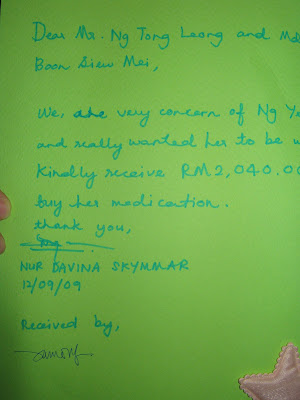 Dear Mr. Ng Tong Leong and
Boon Siew Mei,
We, are very concern of Ng
and really wanted her to be
Kindly receive RM2,040.00
buy her medication.
thank you,
NUR DAVINA SKYMMAR
12/09/09
Received by,